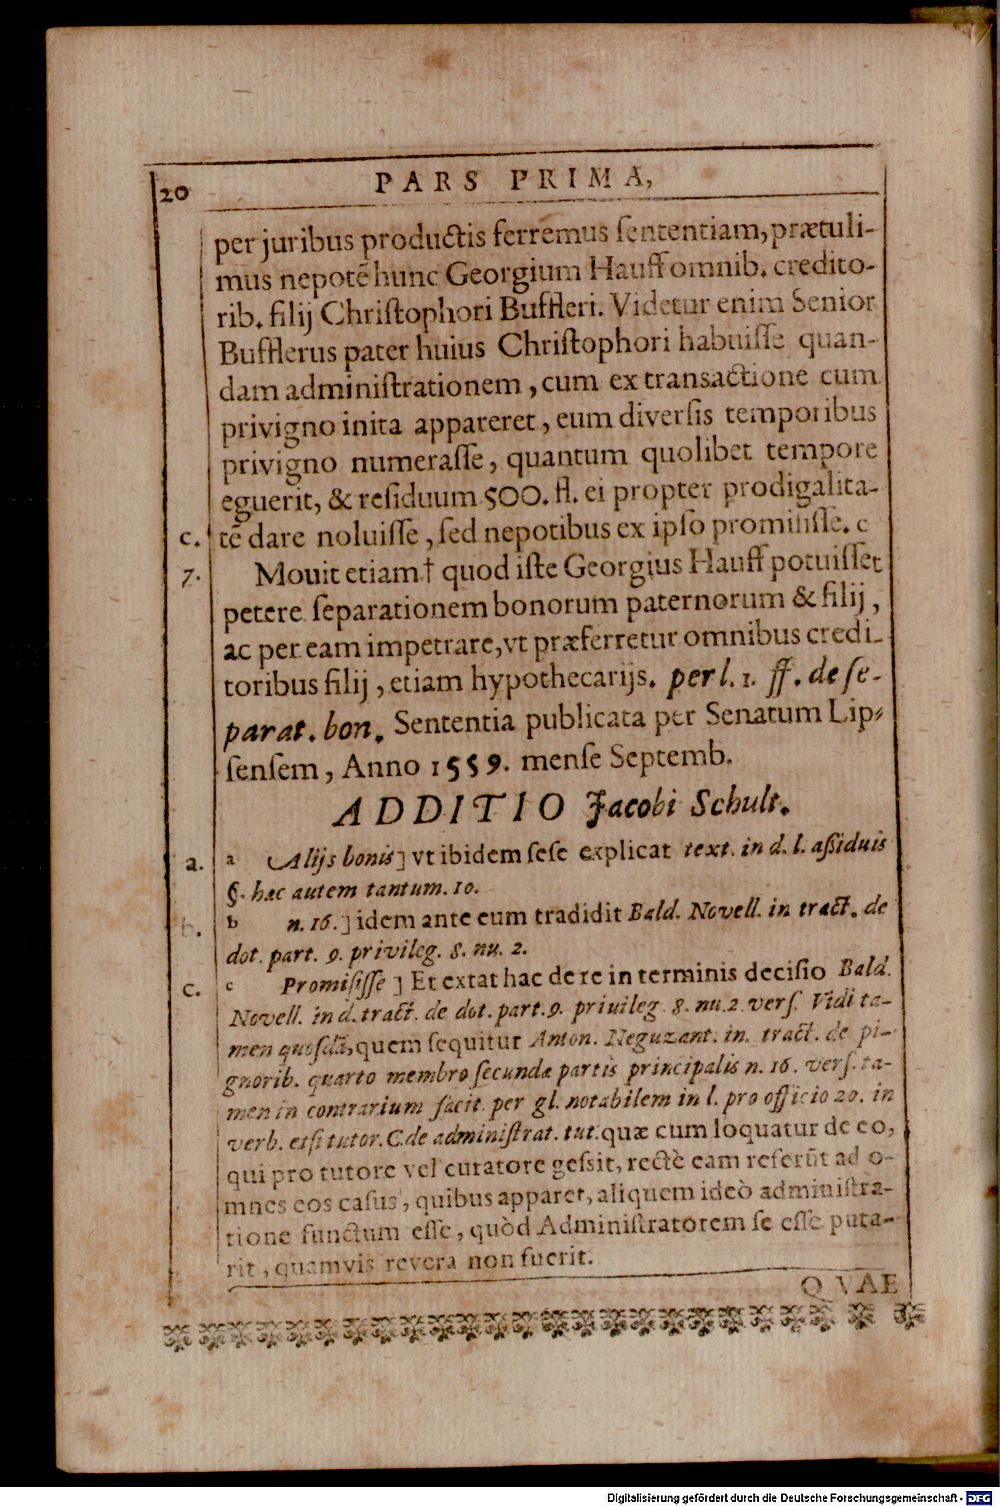 20
PARS PRIMA,
per juribus productis ferremus ſententiam, prætuli-
mus nepotẽ hunc Georgium Hauff omnib. credito-
rib. filij Chriſtophori Buffleri. Videtur enim Senior
Bufflerus pater huius Chriſtophori habuiſſe quan-
dam adminiſtrationem, cum ex transactione cum
privigno inita appareret, eum diverſis temporibus
privigno numeraſſe, quantum quolibet tempore
eguerit, & reſiduum 500. fl. ei propter prodigalita-
c. tẽ dare noluiſſe, ſed nepotibus ex ipſo promiſiſſe. c
7. Mouit etiam † quod iſte Georgius Hauff potuiſſet
petere ſeparationem bonorum paternorum & filij,
ac per eam impetrare, vt præferretur omnibus credi-
toribus filij, etiam hypothecarijs. per l. 1. ff. de ſe-
parat. bon. Sententia publicata per Senatum Lip-
ſenſem, Anno 1559. menſe Septemb.
ADDITIO Jacobi Schult.
a. a Alijs bonis] vt ibidem ſeſe explicat text. in d. l. aſſiduis
§. hac autem tantum. 10.
b. b n. 16.] idem ante eum tradidit Bald. Novell. in tract. de
dot. part. 9. privileg. 8. nu. 2.
c. c Promiſiſſe] Et extat hac de re in terminis deciſio Bald.
Novell. in d. tract. de dot. part. 9. priuileg. 8. nu. 2. verſ. Vidi ta-
men quoſdã, quem ſequitur Anton. Neguzant. in. tract. de pi-
gnorib. quarto membro ſecundæ partis principalis n. 16. verſ. ta-
men in contrarium facit. per gl. notabilem in l. pro officio 20. in
verb. etſi tutor. C. de adminiſtrat. tut. quæ cum loquatur de eo,
qui pro tutore vel curatore geſsit, rectè eam referũt ad o-
mnes eos caſus, quibus apparet, aliquem ideò adminiſtra-
tione functum eſſe, quòd Adminiſtratorem ſe eſſe puta-
rit, quamvis revera non fuerit.
QVAE
Digitalisierung gefördert durch die Deutsche Forschungsgemeinschaft - DFG